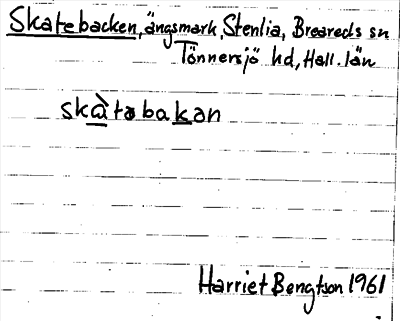 Skatebacken, ängsmark, Stenlia, Breareds sn
Tönnersjö hd, Hall. län
skàtəbakən
Harriet Bengtson 1961